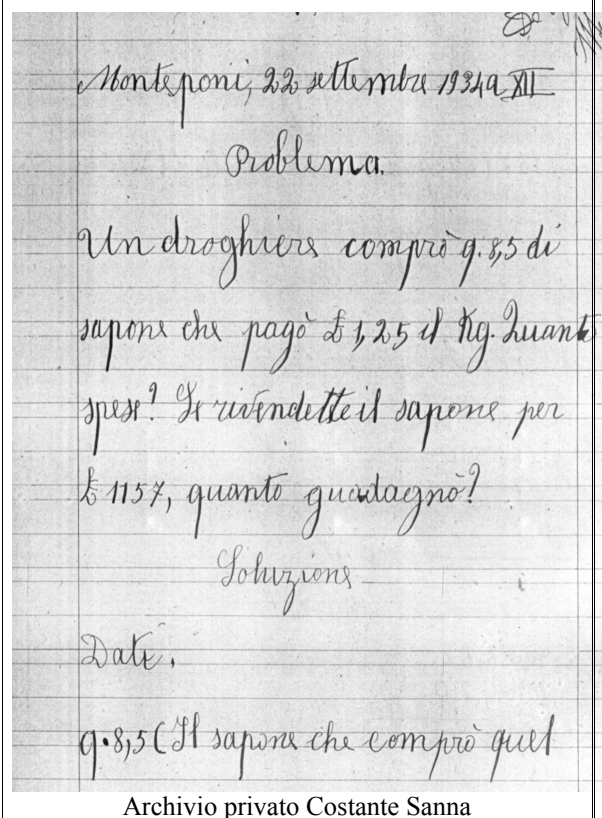 Monteponi, 22 settembre 1934 a XII
Problema.
Un droghiere comprò q. 8,5 di
sapone che pagò £ 1,25 il Kg. Quanto
spese? Se rivendette il sapone per
£ 1157, quanto guadagnò?
Soluzione
Dati.
q. 8,5 (Il sapone che comprò quel
Archivio privato Costante Sanna